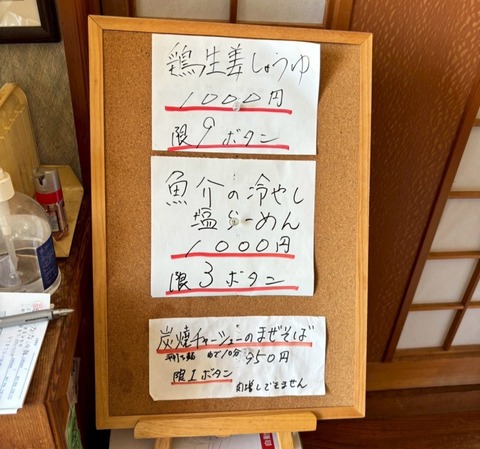 鶏生姜しょうゆ
1000円
限9ボタン
魚介の冷やし
塩らーめん
1000円
限3ボタン
炭焼チャーシューのまぜそば
平打ち麺 ゆで10分 950円
限1ボタン
麺増しできません